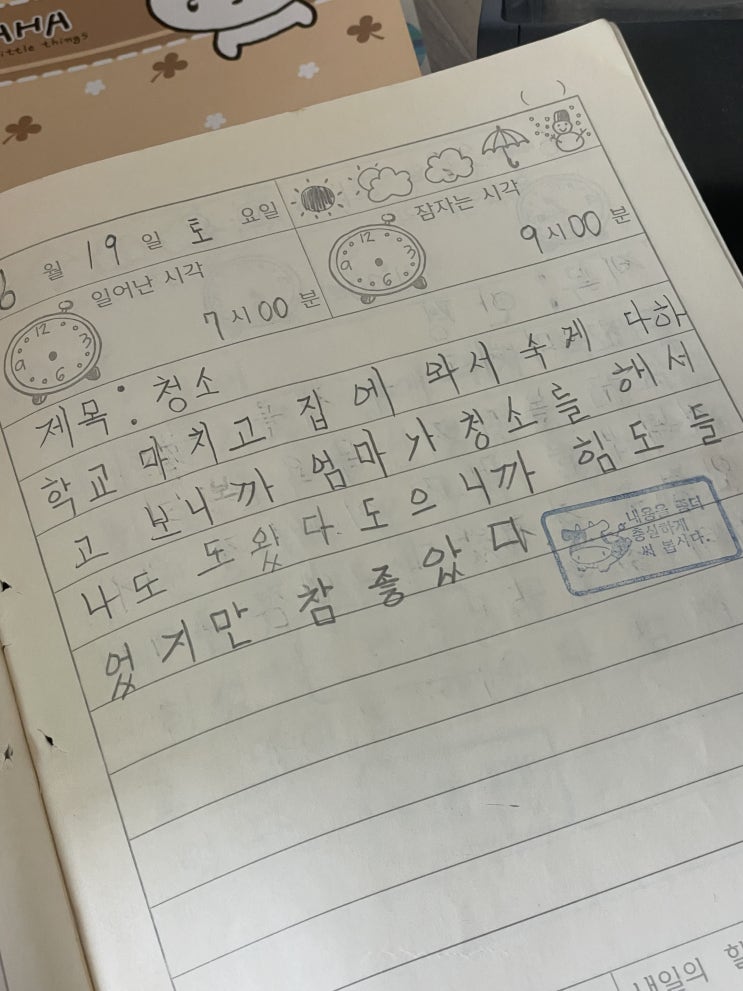 AHA
little things
( )
월 19 일 토 요일
일어난 시각
7 시 00 분
잠자는 시각
9 시 00 분
12 3 6 9
12 3 6 9
제목: 청소
학교 마치고 집 에 와서 숙제 다하
고 보니까 엄마가 청소를 해서
나도 도왔다 도으니까 힘도 들
었지만 참 좋았다
내용을
충실하게
써 봅시다.
내일의